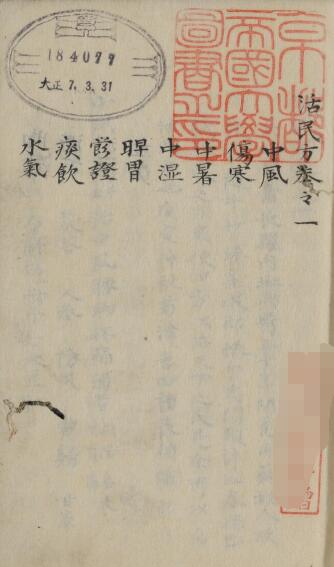 京都
帝國大學
圖書之印
184077
大正 7.3.31
活民方卷之一
中風
傷寒
中暑
中湿
脾胃
證
痰飲
水氣